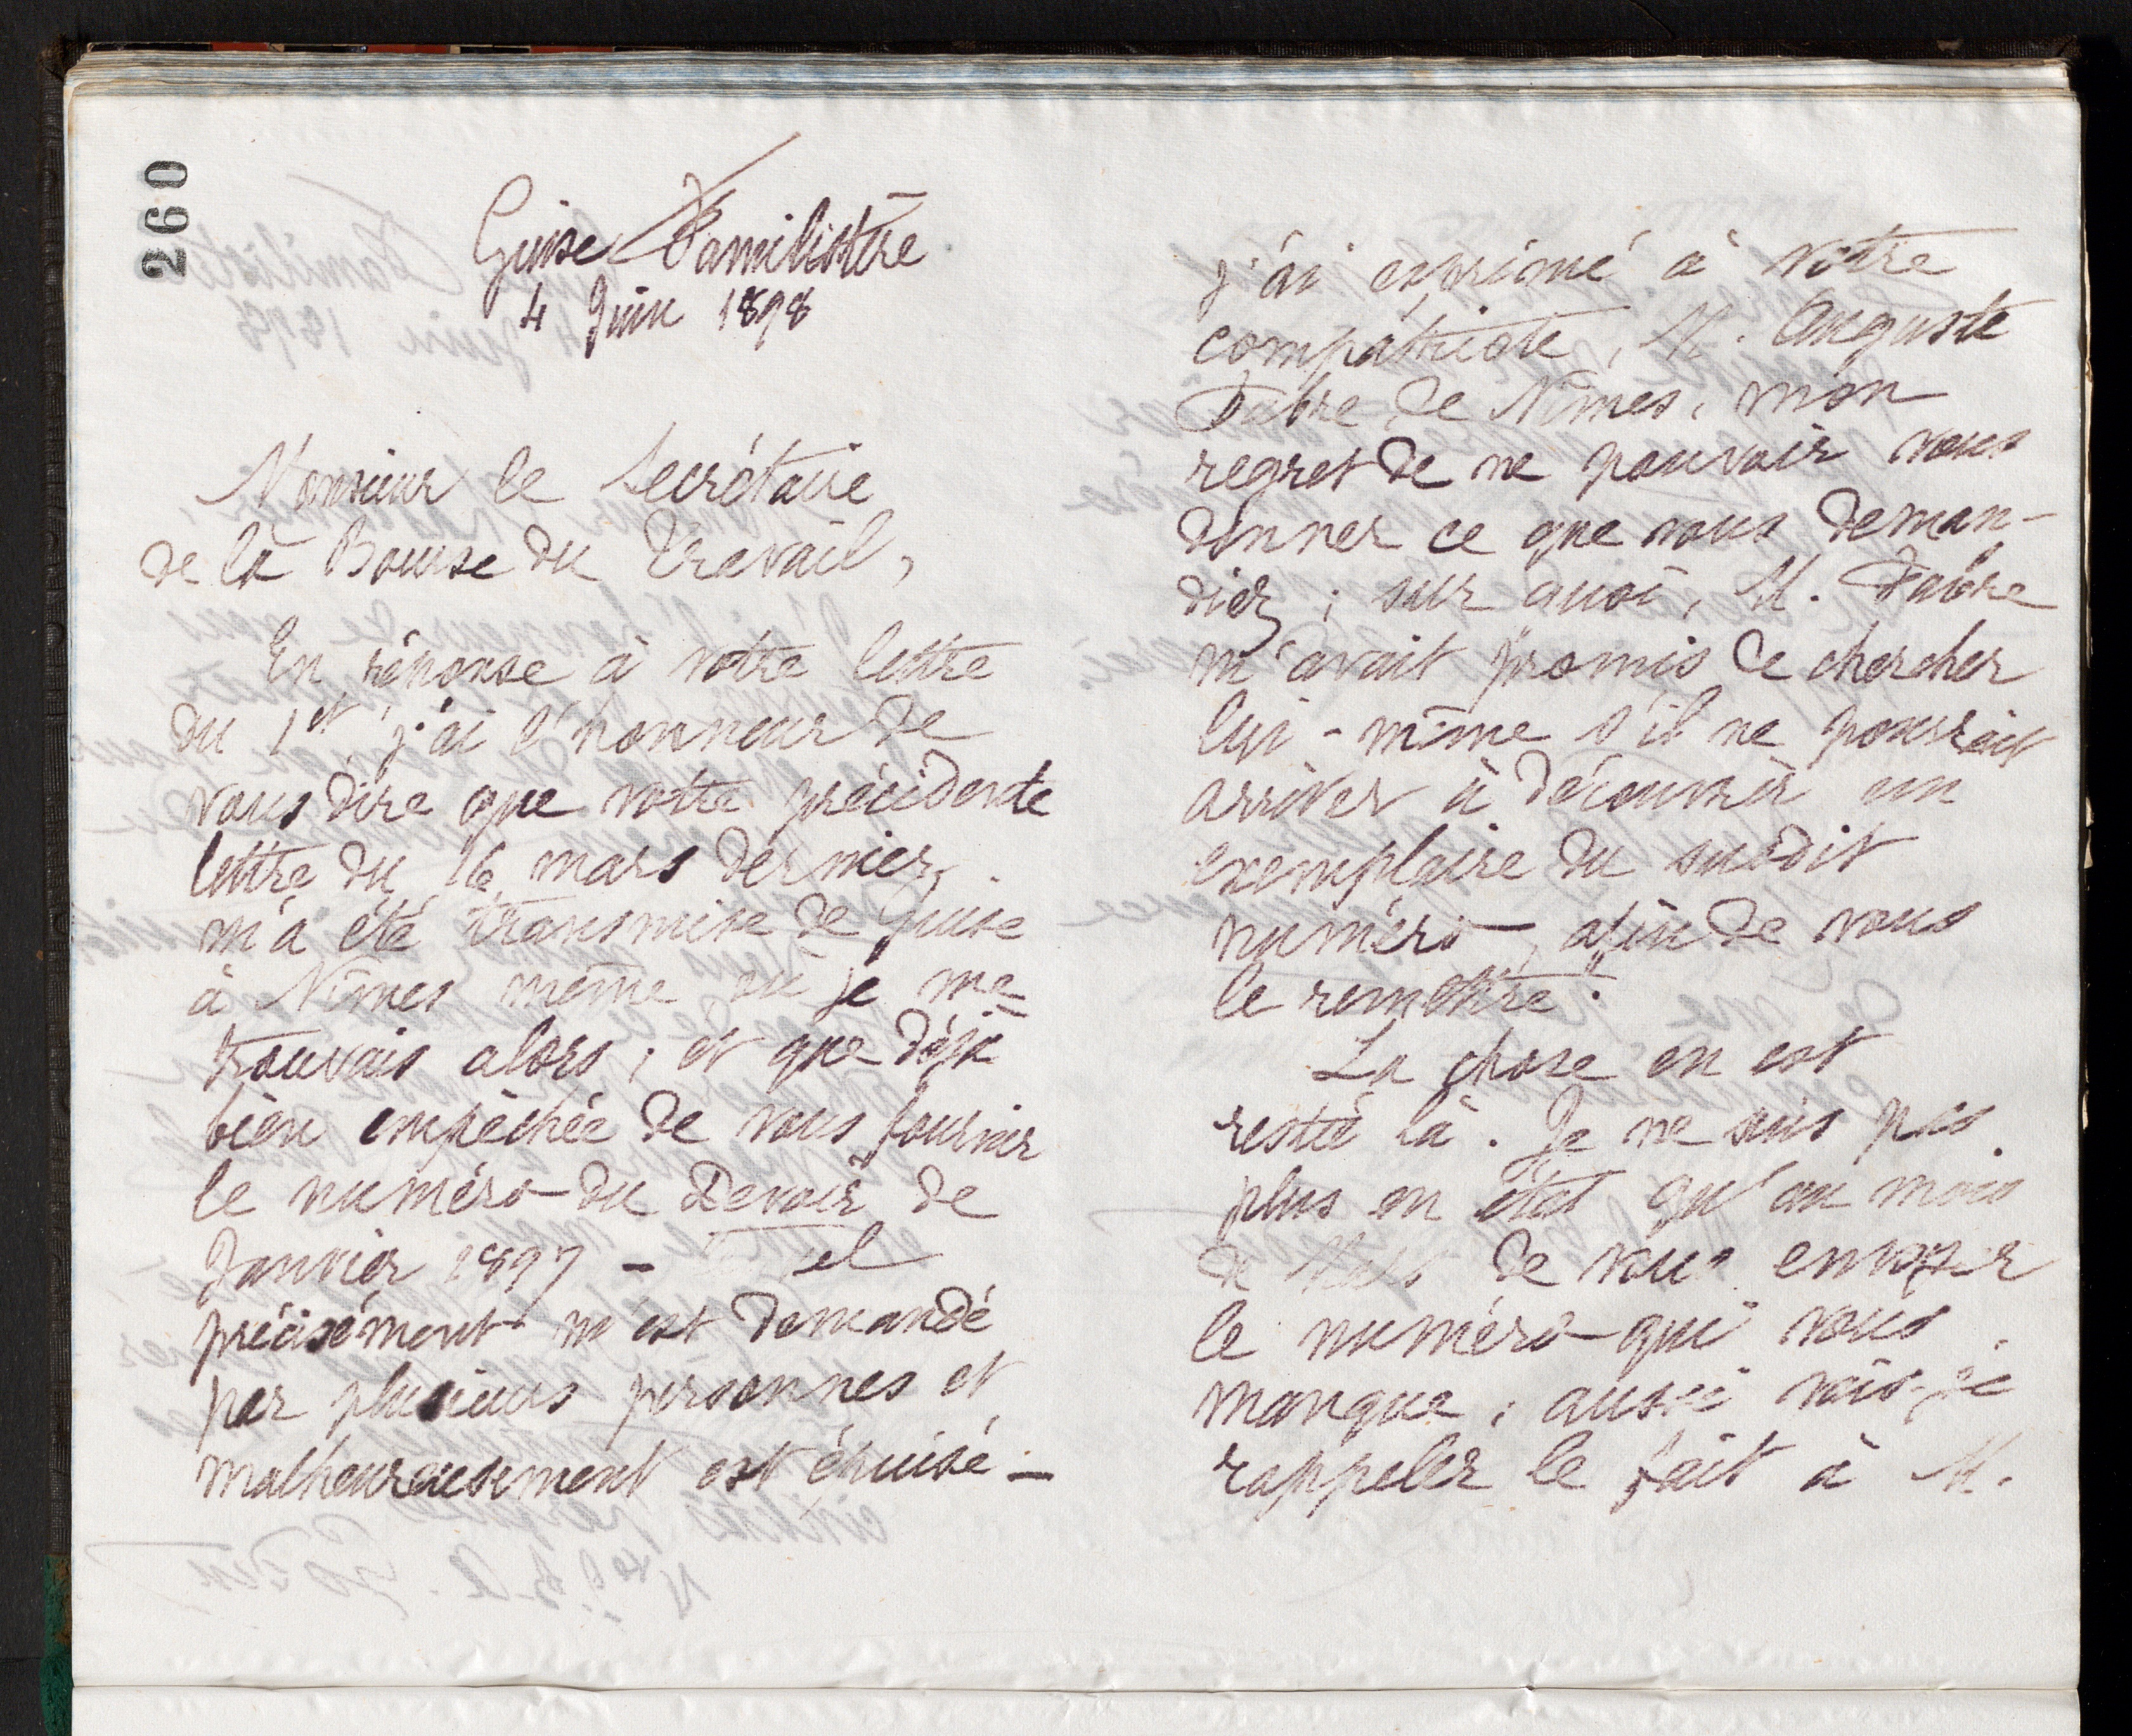 260
Guise Familistère
4 Juin 1898
Monsieur le Secrétaire
de la Bourse du Travail,
En réponse à votre lettre
du 1er j'ai l'honneur de
vous dire que votre précédente
lettre du 16 mars dernier
m'a été transmise de Guise
à Nîmes même où je me
trouvais alors ; et que déjà
bien empêchée de vous fournir
le numéro du Devoir de
Janvier 1897 - lequel
précisément m'est demandé
par plusieurs personnes et
malheureusement est épuisé -
j'ai exprimé à votre
compatriote, M. Auguste
Fabre, de Nîmes, mon
regret de ne pouvoir vous
donner ce que vous deman-
diez ; sur quoi, M. Fabre
m'avait promis de chercher
lui-même s'il ne pourrait
arriver à découvrir un
exemplaire du susdit
numéro, afin de vous
le remettre.
La chose en est
restée là. Je ne suis pas
plus en état qu'au mois
de Mars de vous envoyer
le numéro qui vous
manque ; aussi vais-je
rappeler le fait à M.